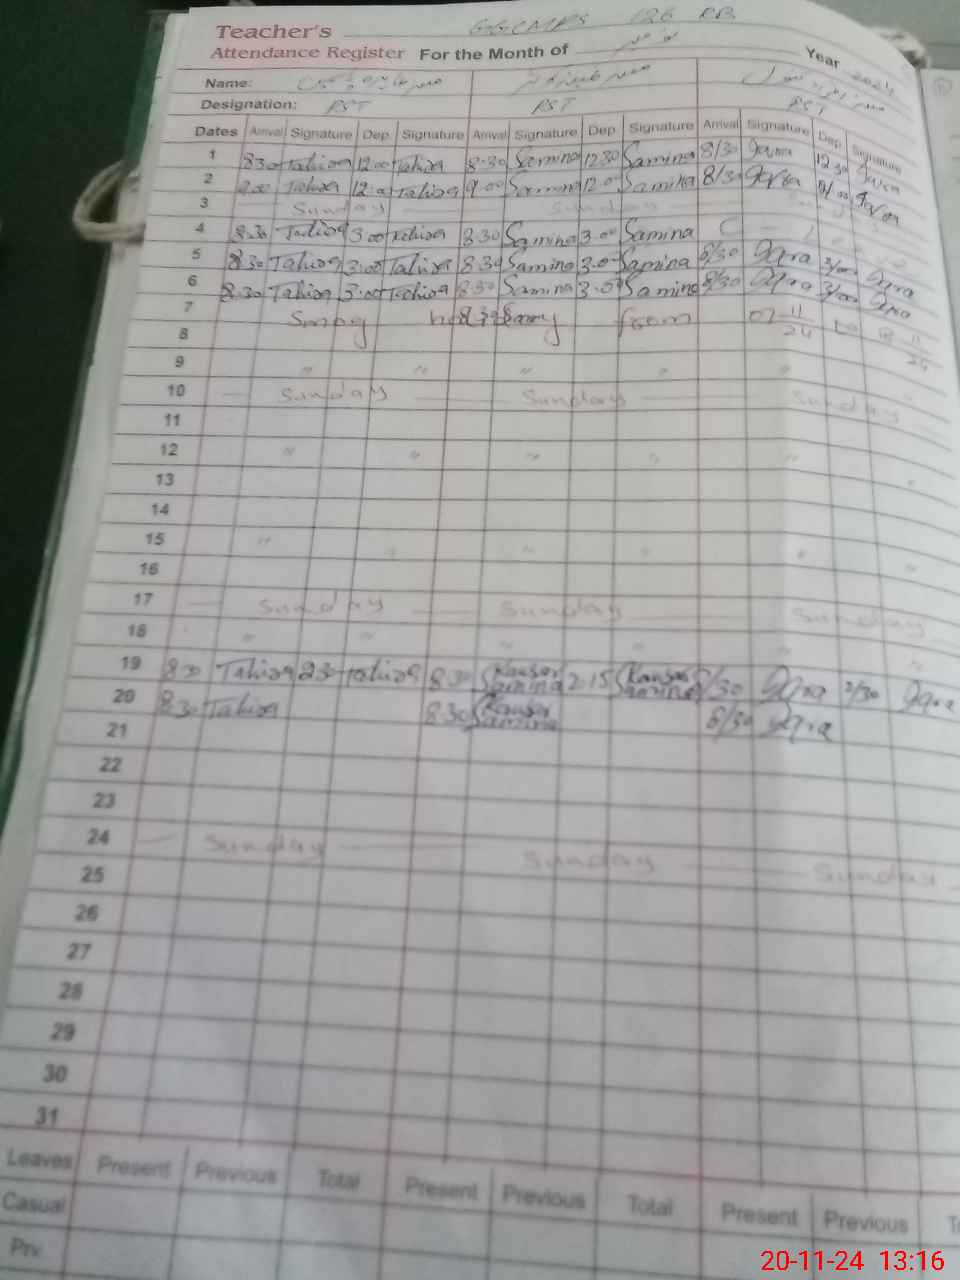 Teacher's GGCMPS 126 RB
Attendance Register For the Month of نومبر Year 2024
Name:
Designation: PST PST PST
Dates Arrival Signature Dep. Signature Arrival Signature Dep. Signature Arrival Signature Dep. Signature
1 8:30 Tahira 12:00 Tahira 8:30 Samina 12:30 Samina 8/30 Iqra 12:30 Iqra
2 9:00 Tahira 12:00 Tahira 9:00 Samina 12:00 Samina 8/30 Iqra Iqra
3 Sunday Sunday Sunday
4 8:30 Tahira 3:00 Tahira 8:30 Samina 3:00 Samina
5 8:30 Tahira 3:00 Tahira 8:30 Samina 3:00 Samina 8/30 Iqra 3/00 Iqra
6 8:30 Tahira 3:00 Tahira 8:30 Samina 3:00 Samina 8/30 Iqra 3/00 Iqra
7 Smog from 07 11/24 to 18 11/24
8
9 " " " " "
10 Sunday Sunday Sunday
11
12 " " " " "
13 "
14
15 " " " " "
16 "
17 Sunday Sunday Sunday
18 " " " " " "
19 8:30 Tahira 2:30 Tahira 8:30 Kausar Samina 2:15 Kausar Samina 8/30 Iqra 2/30 Iqra
20 8:30 Tahira 8:30 Kausar Samina 8/30 Iqra
21
22
23
24 Sunday Sunday Sunday
25
26
27
28
29
30
31
Leaves Present Previous Total Present Previous Total Present Previous
Casual
Prv.
20-11-24 13:16